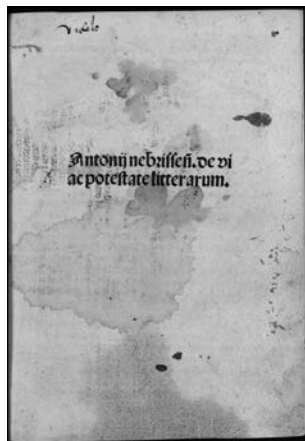 Antonij nebrissen̄. de vi
ac potestate litterarum.